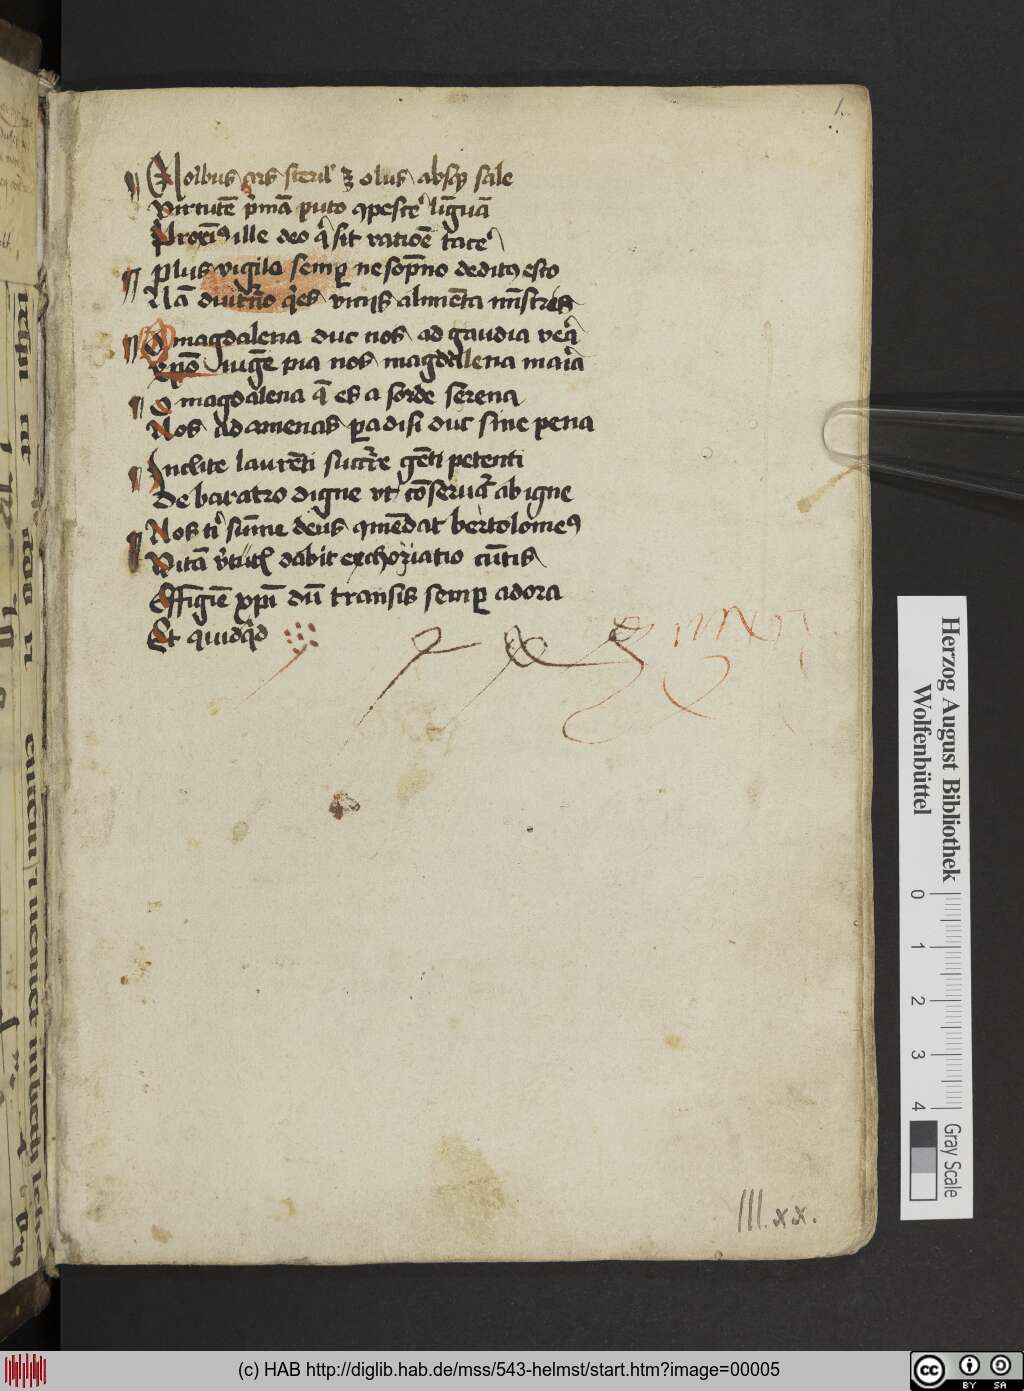 1.
Moribus ars steril' ⁊ olus absqꝫ sale
Virtutē p̄mā puto ꝯpesce' liguā
Proxi9 ille deo q̄ sit ratiōe tace'
Plus vigila semꝑ ne sop̄no dedit9 esto
Nā diut'no q'es vicijs alimēta mīstres
O magdalena duc nos ad gaudia veͣ
xp̄o iūge pia nos magdalena maͥa
O magdalena q̄ es a sorde serena
Nos ad amenas paradisi duc sine pena
Inclite laurēti succ're gēti petenti
De baratro digne vt cōseruet' ab igne
Nos ti' sūme deus ꝯmēdat bertolome9
Vitā dabit exchoriatio cūtis
Effigiē xp̄i dū transis semꝑ adora
Et quidqd
III.xx.
Herzog August Bibliothek
Wolfenbüttel
0 1 2 3 4
Gray Scale
(c) HAB http://diglib.hab.de/mss/543-helmst/start.htm?image=00005
cc BY SA